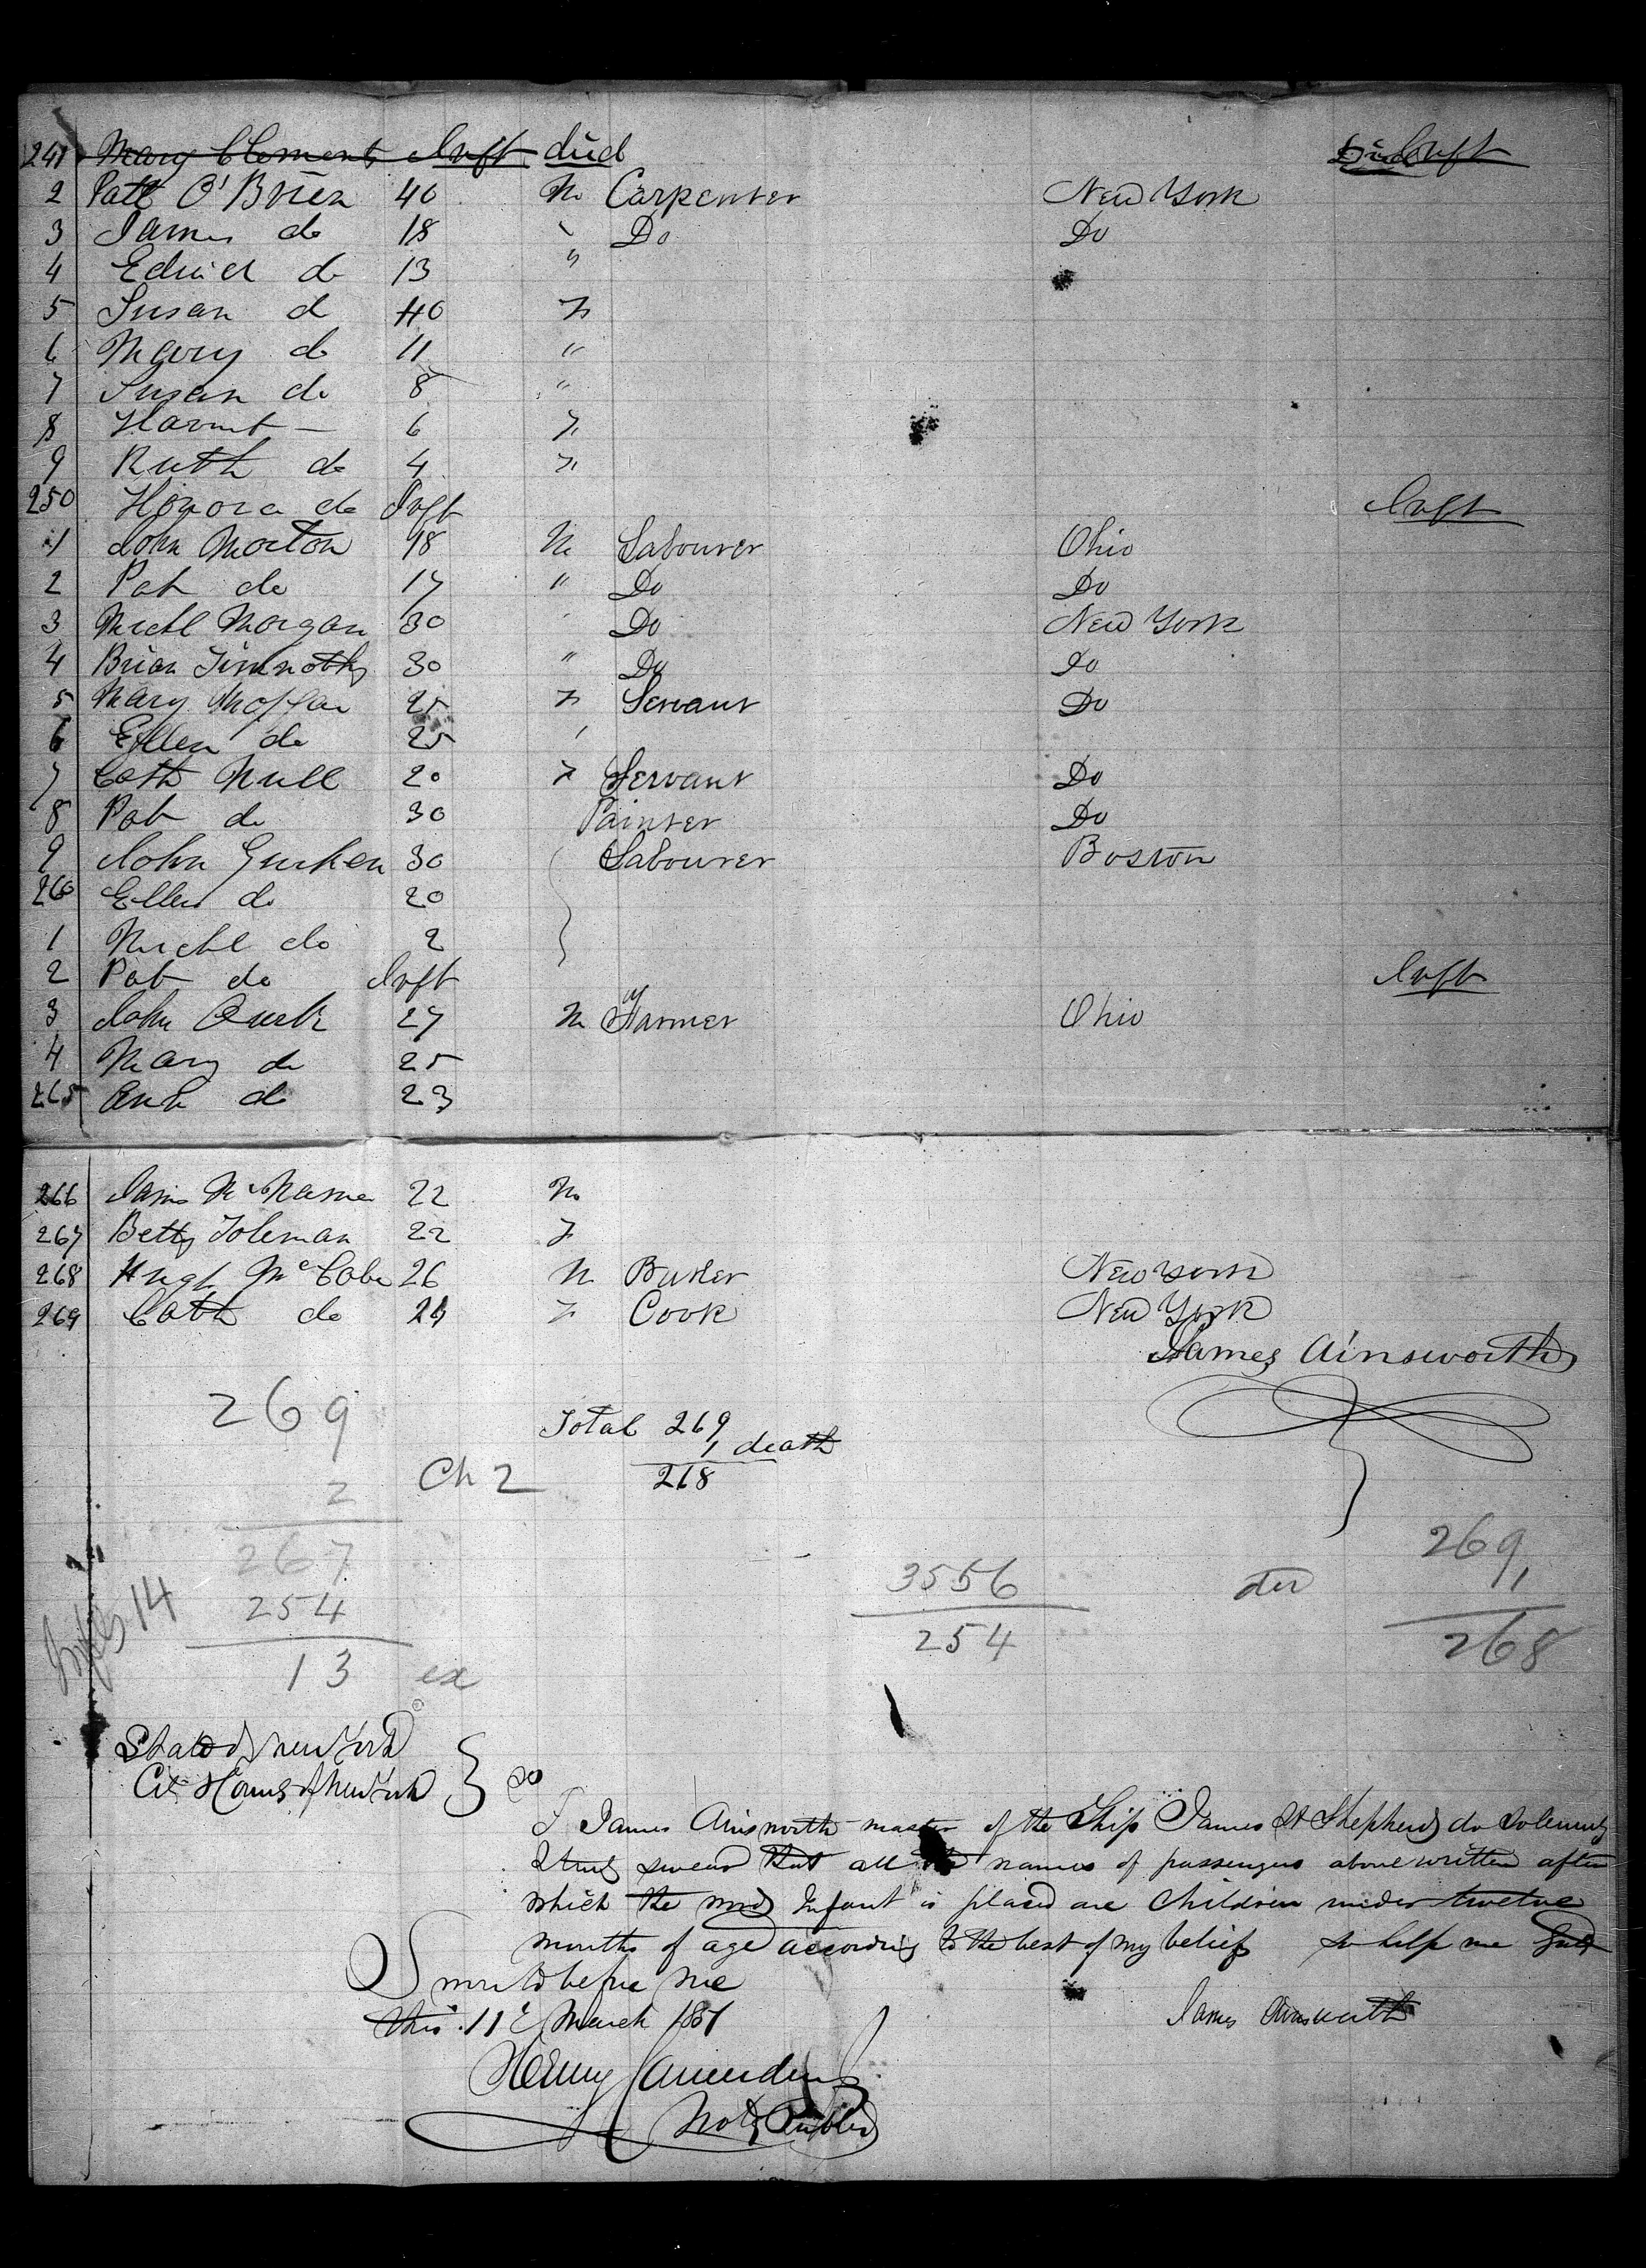 241 Mary Clements Inft died Inft
2 Patt O'Brien 40 M Carpenter New York
3 James do 18 " Do Do
4 do 13 "
5 Susan d 40 F
6 Mary do 11 "
7 Susan do 8 "
8 Harriet — 6 F
9 Ruth do 4 F
250 Honora do Inft Inft
1 John Morton 18 M Labourer Ohio
2 Pat do 17 " Do Do
3 Michl Morgan 30 " Do New York
4 Brian Timnothy 30 " Do Do
5 Mary Moffan 25 F Servant Do
6 Ellen do 25 "
7 Cath Null 20 F Servant Do
8 Pat do 30 Painter Do
9 John Gurken 30 Labourer Boston
260 Ellen do 20
1 Michl do 2
2 Pat do Inft Inft
3 John Quirk 27 M Farmer Ohio
4 Mary do 25
265 Ann do 23
266 James McNamee 22 M
267 Betty Toleman 22 F
268 Hugh McCabe 26 M Butler New York
269 Cath do 24 F Cook New York
James Ainsworth
269 Total 269
1 death
2 Ch 2 268
267 269
254 3556 1
Infts 14 254 268
13 ex
State of New York
City & County of New York } SS
I James Ainsworth master of the Ship James H Shepherd do solemnly
& truly swear that all the names of passengers above written after
which the word Infant is placed are Children under twelve
months of age according to the best of my belief so help me God
Sworn to before me
this 11th March 1851 James Ainsworth
Henry
Noty Public